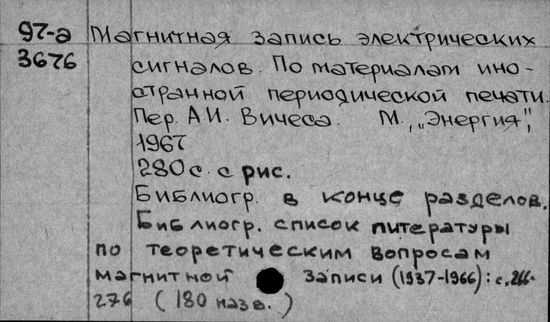 97-а Магнитная запись электрических
3676 сигналов. По материалам ино-
странной периодической печати.
Пер. А.И. Вичеса. М., „Энергия",
1967
280 с. с рис.
Библиогр. в конце разделов.
Библиогр. список литературы
по теоретическим вопросам
магнитной записи (1937-1966): с. 266-
276 (180 назв.)